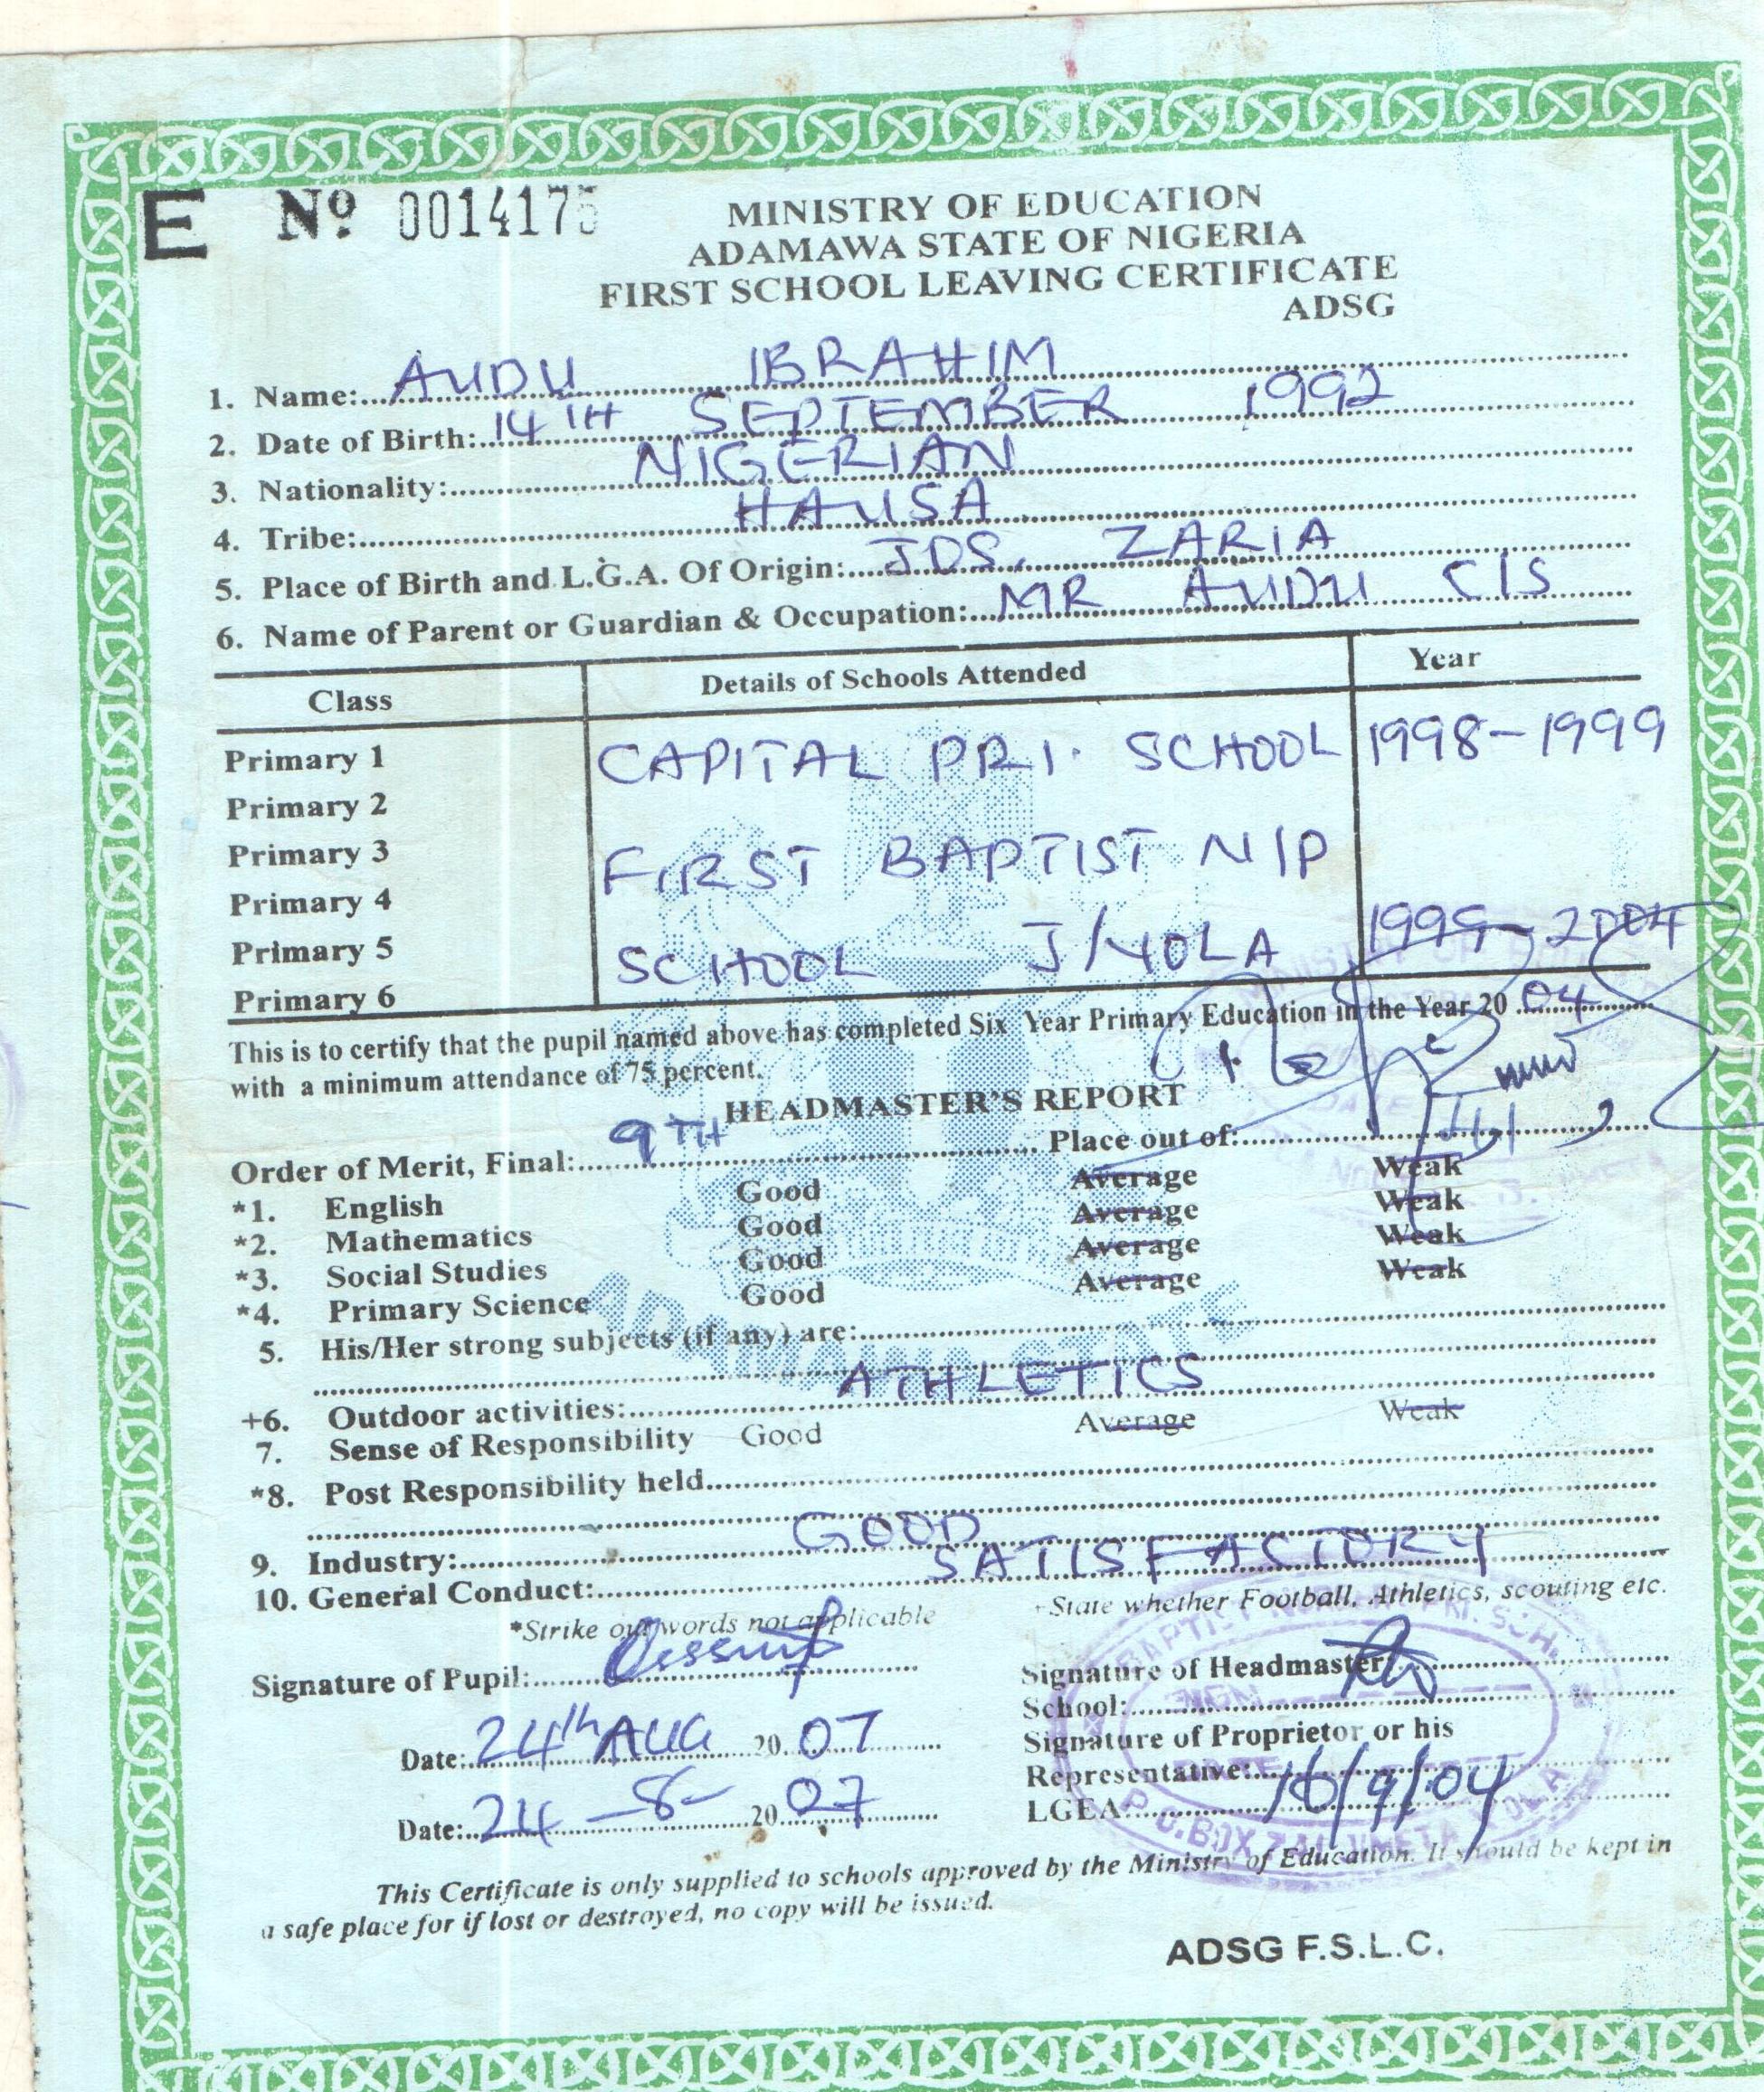 E Nº 0014175
MINISTRY OF EDUCATION
ADAMAWA STATE OF NIGERIA
FIRST SCHOOL LEAVING CERTIFICATE
ADSG
1. Name: AUDU IBRAHIM
2. Date of Birth: 14TH SEPTEMBER 1992
3. Nationality: NIGERIAN
4. Tribe: HAUSA
5. Place of Birth and L.G.A. Of Origin: JDS, ZARIA
6. Name of Parent or Guardian & Occupation: MR AUDU C/S
Class Details of Schools Attended Year
Primary 1 CAPITAL PRI. SCHOOL 1998-1999
Primary 2
Primary 3 FIRST BAPTIST N/P
Primary 4
Primary 5 SCHOOL J/YOLA 1999-2004
Primary 6
This is to certify that the pupil named above has completed Six Year Primary Education in the Year 20 04
with a minimum attendance of 75 percent.
HEADMASTER'S REPORT
Order of Merit, Final: 9TH Place out of:
*1. English Good Average Weak
*2. Mathematics Good Average Weak
*3. Social Studies Good Average Weak
*4. Primary Science Good Average Weak
5. His/Her strong subjects (if any) are:
+6. Outdoor activities: ATHLETICS
7. Sense of Responsibility Good Average Weak
*8. Post Responsibility held
9. Industry: GOOD
10. General Conduct: SATISFACTORY
*Strike out words not applicable + State whether Football, Athletics, scouting etc.
Signature of Pupil: Signature of Headmaster
School:
Date: 24th AUG 20 07 Signature of Proprietor or his
Representative: 16/9/04
Date: 24-8- 20 07 LGEA:
This Certificate is only supplied to schools approved by the Ministry of Education. It should be kept in
a safe place for if lost or destroyed, no copy will be issued.
ADSG F.S.L.C.